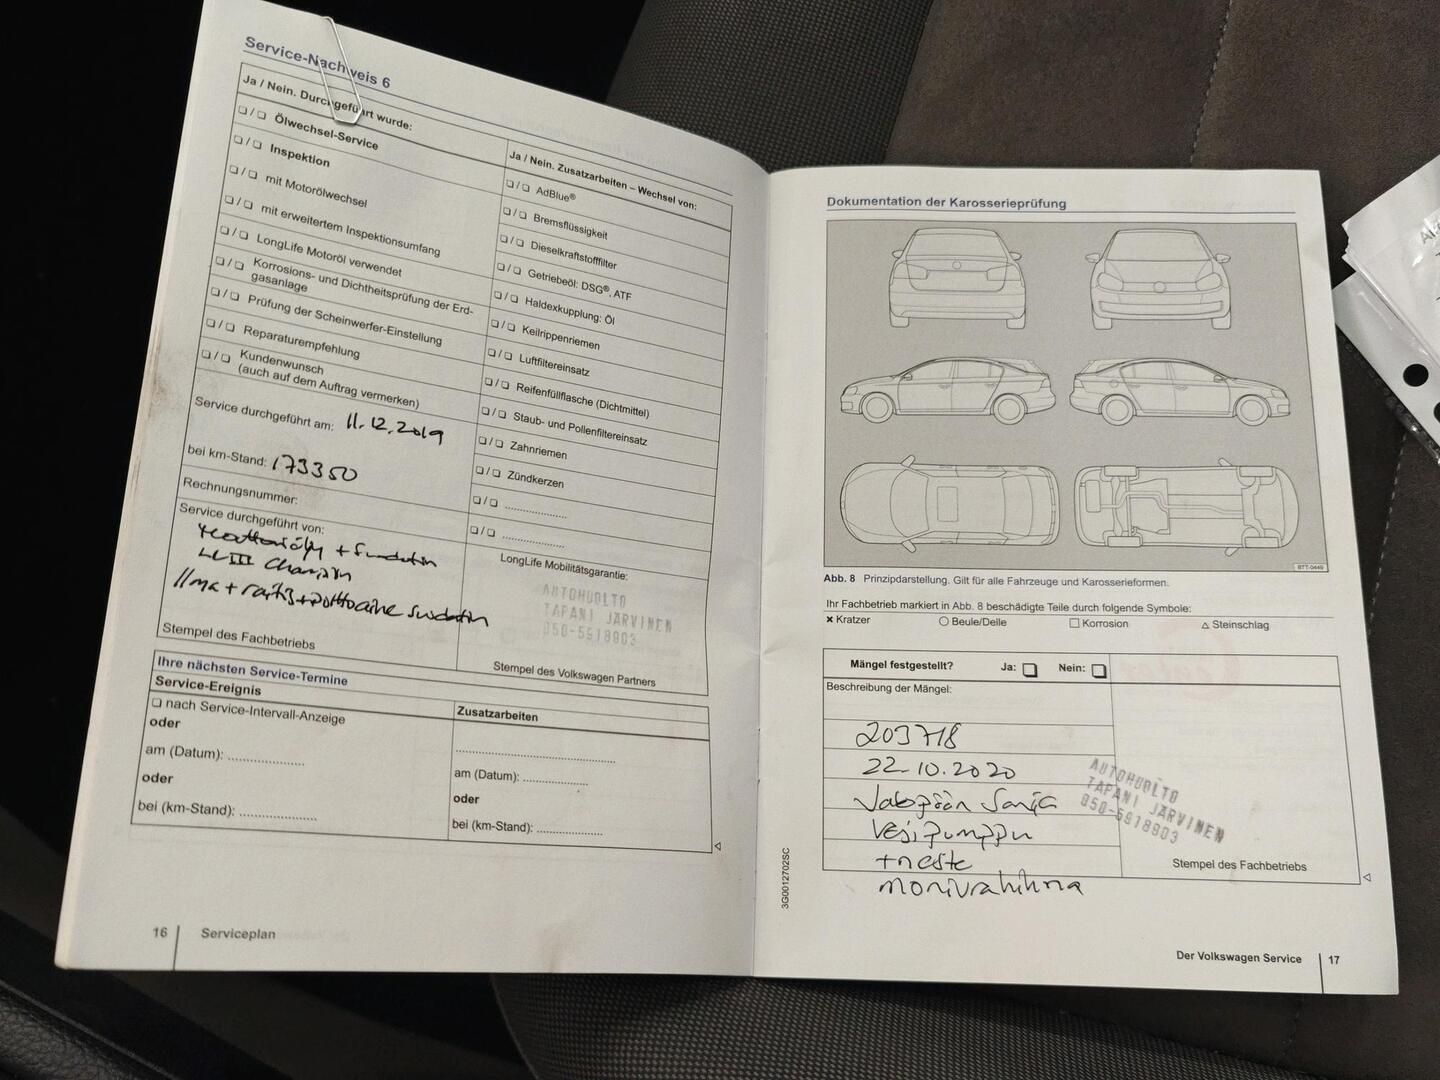 Service-Nachweis 6
Ja / Nein. Durchgeführt wurde:
❏ / ❏ Ölwechsel-Service
❏ / ❏ Inspektion
❏ / ❏ mit Motorölwechsel
❏ / ❏ mit erweitertem Inspektionsumfang
❏ / ❏ LongLife Motoröl verwendet
❏ / ❏ Korrosions- und Dichtheitsprüfung der Erd-
gasanlage
❏ / ❏ Prüfung der Scheinwerfer-Einstellung
❏ / ❏ Reparaturempfehlung
❏ / ❏ Kundenwunsch
(auch auf dem Auftrag vermerken)
Service durchgeführt am: 11.12.2019
bei km-Stand: 173350
Rechnungsnummer:
Service durchgeführt von:
moottoriöljy + suodatin
LLIII Champion
Ilma + raitis + polttoaine suodatin
Stempel des Fachbetriebs
Ja / Nein. Zusatzarbeiten – Wechsel von:
❏ / ❏ AdBlue®
❏ / ❏ Bremsflüssigkeit
❏ / ❏ Dieselkraftstofffilter
❏ / ❏ Getriebeöl: DSG®, ATF
❏ / ❏ Haldexkupplung: Öl
❏ / ❏ Keilrippenriemen
❏ / ❏ Luftfiltereinsatz
❏ / ❏ Reifenfüllflasche (Dichtmittel)
❏ / ❏ Staub- und Pollenfiltereinsatz
❏ / ❏ Zahnriemen
❏ / ❏ Zündkerzen
❏ / ❏ ................
❏ / ❏ ................
LongLife Mobilitätsgarantie:
AUTOHUOLTO
TAPANI JÄRVINEN
050-5918903
Stempel des Volkswagen Partners
Ihre nächsten Service-Termine
Service-Ereignis
❏ nach Service-Intervall-Anzeige
oder
am (Datum): ....................
oder
bei (km-Stand): ....................
Zusatzarbeiten
........................................
am (Datum): .................
oder
bei (km-Stand): .................
16 Serviceplan
Dokumentation der Karosserieprüfung
BTT-0449
Abb. 8 Prinzipdarstellung. Gilt für alle Fahrzeuge und Karosserieformen.
Ihr Fachbetrieb markiert in Abb. 8 beschädigte Teile durch folgende Symbole:
× Kratzer ○ Beule/Delle □ Korrosion △ Steinschlag
Mängel festgestellt? Ja: ❏ Nein: ❏
Beschreibung der Mängel:
203718
22.10.2020
Jakopään sarja
Vesipumppu
+ neste
monivahihna
AUTOHUOLTO
TAPANI JÄRVINEN
050-5918903
Stempel des Fachbetriebs
3G0012702SC
Der Volkswagen Service 17